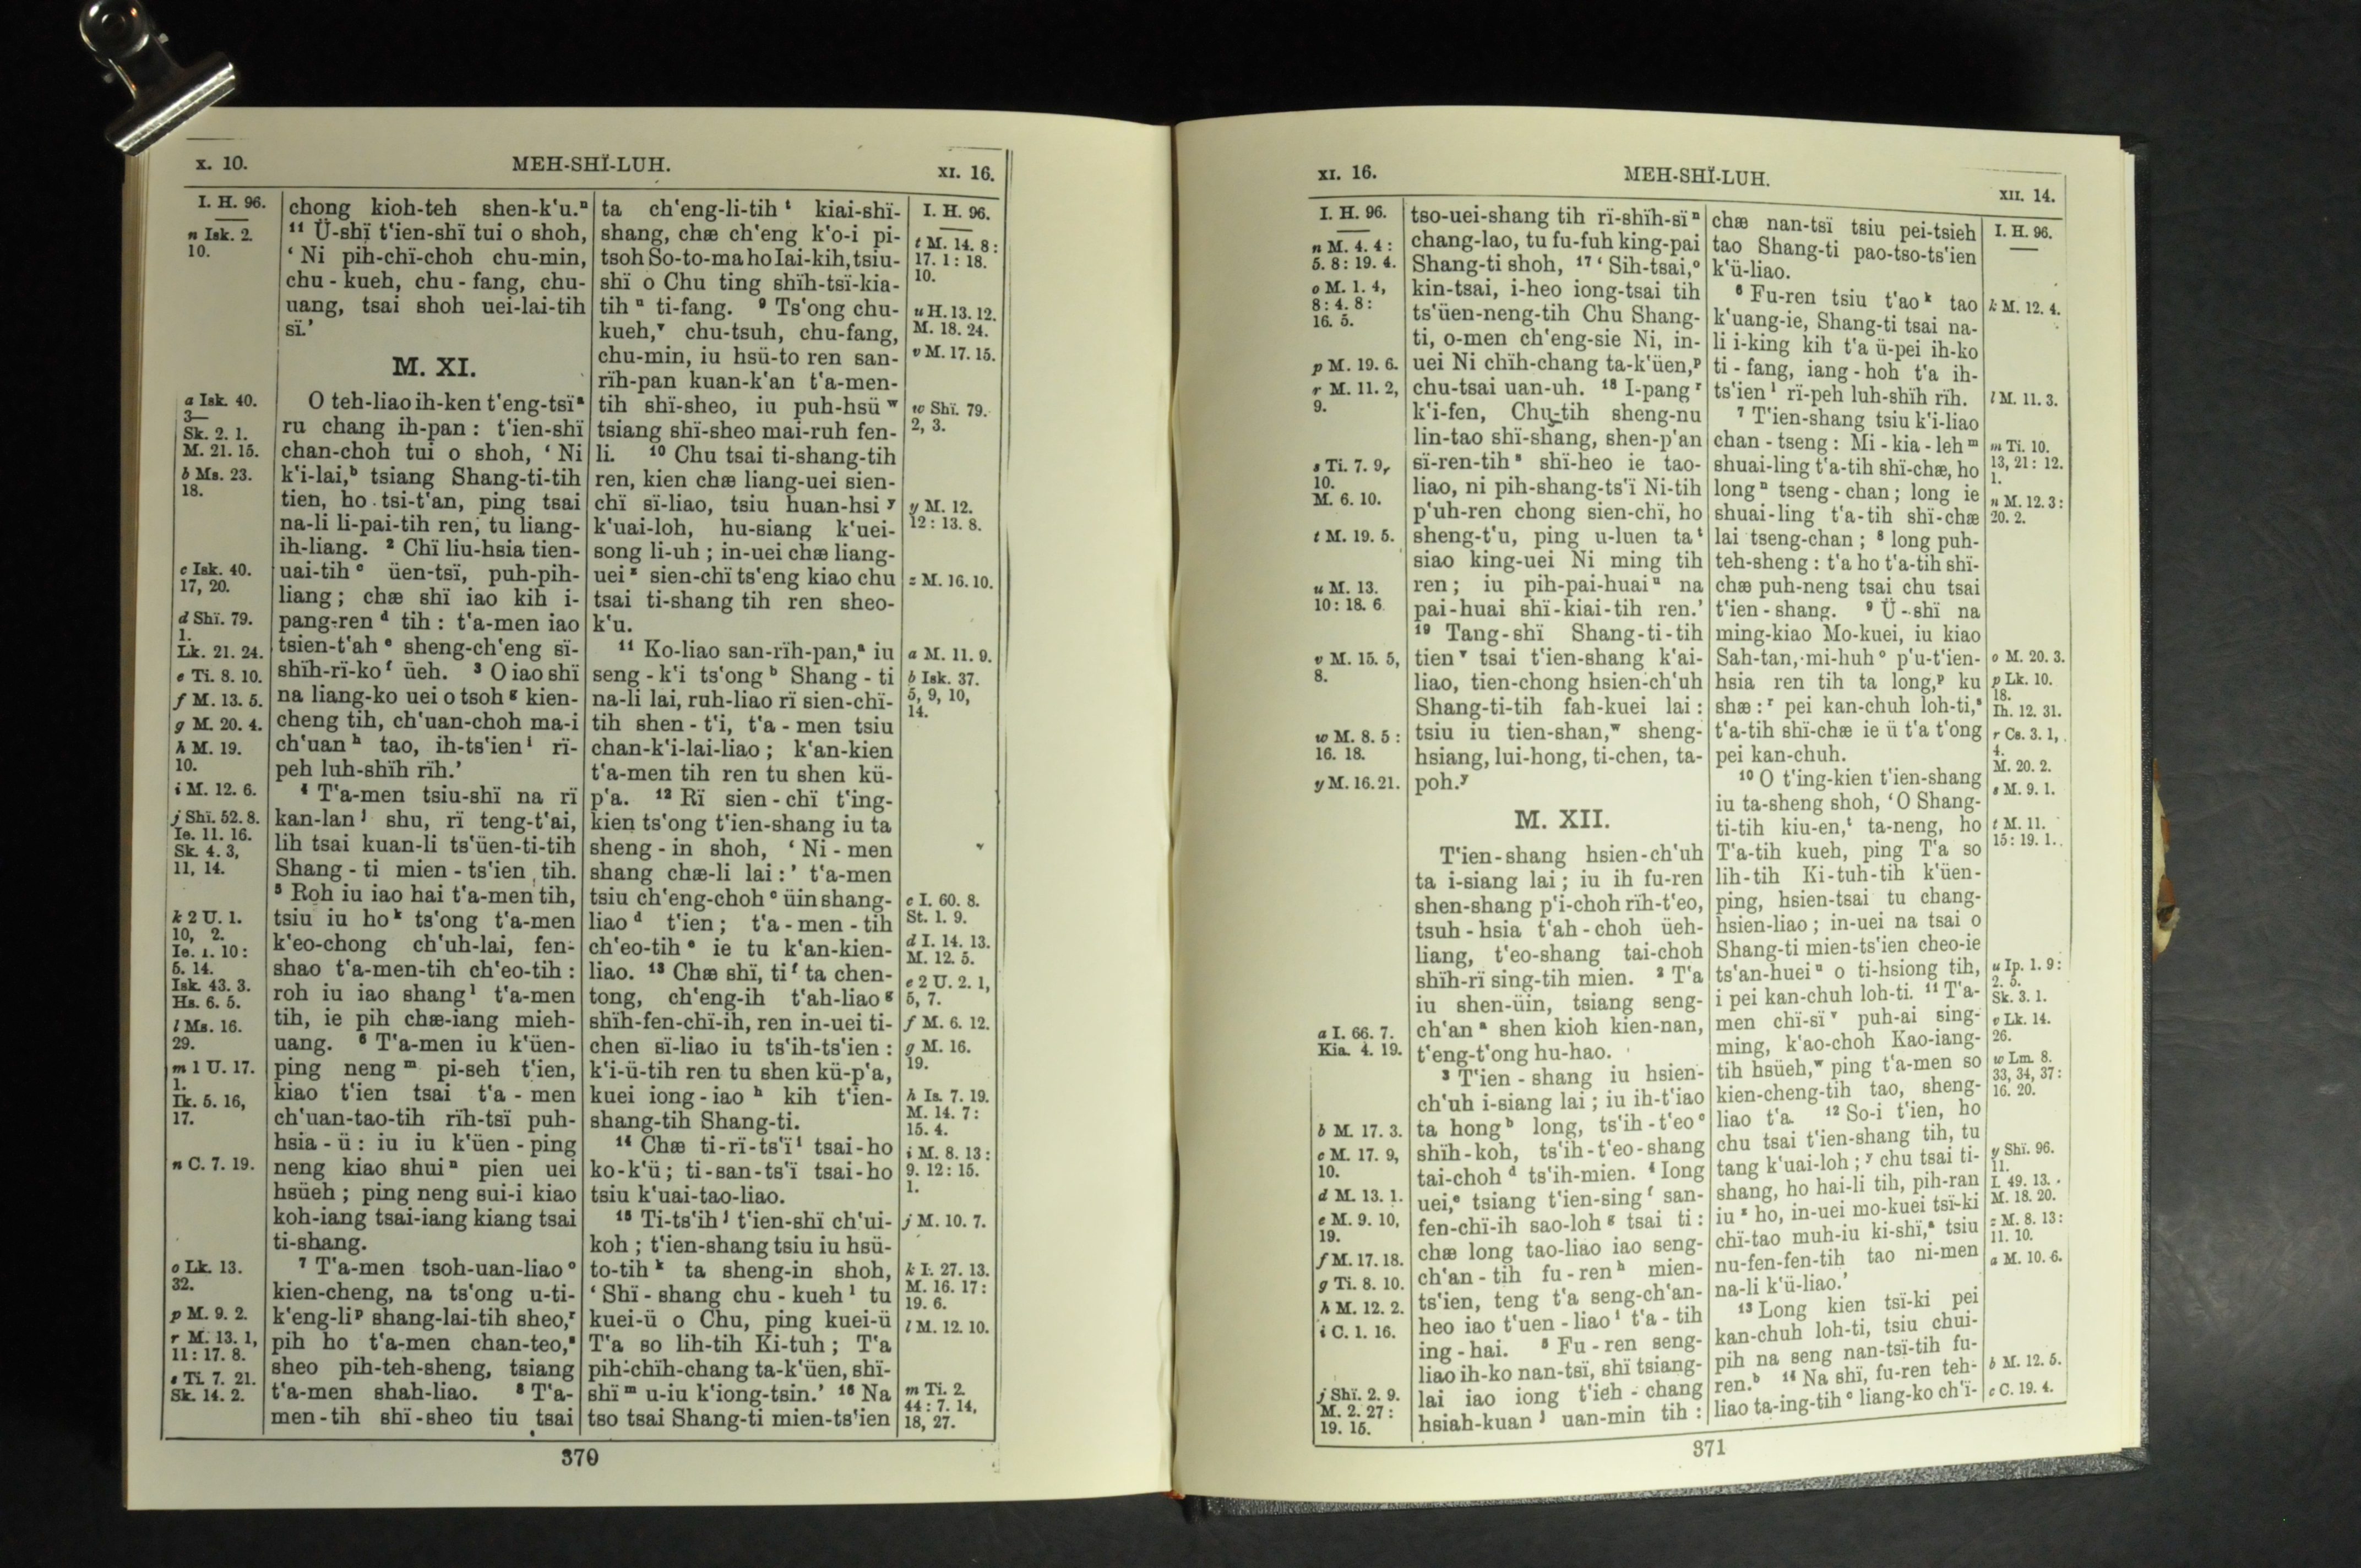 x. 10.
MEH-SHÏ-LUH.
XI. 16.
I. H. 96.
n Isk. 2.
10.
a Isk. 40.
3—
Sk. 2. 1.
M. 21. 15.
b Ms. 23.
18.
c Isk. 40.
17, 20.
d Shï. 79.
1.
Lk. 21. 24.
e Ti. 8. 10.
f M. 13. 5.
g M. 20. 4.
h M. 19.
10.
i M. 12. 6.
j Shï. 52. 8.
Ie. 11. 16.
Sk. 4. 3,
11, 14.
k 2 U. 1.
10, 2.
Ie. 1. 10:
5. 14.
Isk. 43. 3.
Hs. 6. 5.
l Ms. 16.
29.
m 1 U. 17.
1.
Ik. 5. 16,
17.
n C. 7. 19.
o Lk. 13.
32.
p M. 9. 2.
r M. 13. 1,
11: 17. 8.
s Ti. 7. 21.
Sk. 14. 2.
chong kioh-teh shen-k'u.ⁿ
¹¹ Ü-shï t'ien-shï tui o shoh,
‘ Ni pih-chï-choh chu-min,
chu-kueh, chu-fang, chu-
uang, tsai shoh uei-lai-tih
sï.’
M. XI.
O teh-liao ih-ken t'eng-tsïᵃ
ru chang ih-pan: t'ien-shï
chan-choh tui o shoh, ‘ Ni
k'i-lai,ᵇ tsiang Shang-ti-tih
tien, ho tsi-t'an, ping tsai
na-li li-pai-tih ren, tu liang-
ih-liang. ² Chï liu-hsia tien-
uai-tihᶜ üen-tsï, puh-pih-
liang; chæ shï iao kih i-
pang-renᵈ tih: t'a-men iao
tsien-t'ahᵉ sheng-ch'eng sï-
shïh-rï-koᶠ üeh. ³ O iao shï
na liang-ko uei o tsohᵍ kien-
cheng tih, ch'uan-choh ma-i
ch'uanʰ tao, ih-ts'ienⁱ rï-
peh luh-shïh rïh.’
⁴ T'a-men tsiu-shï na rï
kan-lanʲ shu, rï teng-t'ai,
lih tsai kuan-li ts'üen-ti-tih
Shang-ti mien-ts'ien tih.
⁵ Roh iu iao hai t'a-men tih,
tsiu iu hoᵏ ts'ong t'a-men
k'eo-chong ch'uh-lai, fen-
shao t'a-men-tih ch'eo-tih:
roh iu iao shangˡ t'a-men
tih, ie pih chæ-iang mieh-
uang. ⁶ T'a-men iu k'üen-
ping nengᵐ pi-seh t'ien,
kiao t'ien tsai t'a-men
ch'uan-tao-tih rïh-tsï puh-
hsia-ü: iu iu k'üen-ping
neng kiao shuiⁿ pien uei
hsüeh; ping neng sui-i kiao
koh-iang tsai-iang kiang tsai
ti-shang.
⁷ T'a-men tsoh-uan-liaoᵒ
kien-cheng, na ts'ong u-ti-
k'eng-liᵖ shang-lai-tih sheo,ʳ
pih ho t'a-men chan-teo,ˢ
sheo pih-teh-sheng, tsiang
t'a-men shah-liao. ⁸ T'a-
men-tih shï-sheo tiu tsai
ta ch'eng-li-tihᵗ kiai-shï-
shang, chæ ch'eng k'o-i pi-
tsoh So-to-ma ho Iai-kih, tsiu-
shï o Chu ting shïh-tsï-kia-
tihᵘ ti-fang. ⁹ Ts'ong chu-
kueh,ᵛ chu-tsuh, chu-fang,
chu-min, iu hsü-to ren san-
rïh-pan kuan-k'an t'a-men-
tih shï-sheo, iu puh-hsüʷ
tsiang shï-sheo mai-ruh fen-
li. ¹⁰ Chu tsai ti-shang-tih
ren, kien chæ liang-uei sien-
chï sï-liao, tsiu huan-hsiʸ
k'uai-loh, hu-siang k'uei-
song li-uh; in-uei chæ liang-
ueiᶻ sien-chï ts'eng kiao chu
tsai ti-shang tih ren sheo-
k'u.
¹¹ Ko-liao san-rïh-pan,ᵃ iu
seng-k'i ts'ongᵇ Shang-ti
na-li lai, ruh-liao rï sien-chï-
tih shen-t'i, t'a-men tsiu
chan-k'i-lai-liao; k'an-kien
t'a-men tih ren tu shen kü-
p'a. ¹² Rï sien-chï t'ing-
kien ts'ong t'ien-shang iu ta
sheng-in shoh, ‘ Ni-men
shang chæ-li lai:’ t'a-men
tsiu ch'eng-chohᶜ üin shang-
liaoᵈ t'ien; t'a-men-tih
ch'eo-tihᵉ ie tu k'an-kien-
liao. ¹³ Chæ shï, tiᶠ ta chen-
tong, ch'eng-ih t'ah-liaoᵍ
shïh-fen-chï-ih, ren in-uei ti-
chen sï-liao iu ts'ih-ts'ien:
k'i-ü-tih ren tu shen kü-p'a,
kuei iong-iaoʰ kih t'ien-
shang-tih Shang-ti.
¹⁴ Chæ ti-rï-ts'ïⁱ tsai-ho
ko-k'ü; ti-san-ts'ï tsai-ho
tsiu k'uai-tao-liao.
¹⁵ Ti-ts'ihʲ t'ien-shï ch'ui-
koh; t'ien-shang tsiu iu hsü-
to-tihᵏ ta sheng-in shoh,
‘ Shï-shang chu-kuehˡ tu
kuei-ü o Chu, ping kuei-ü
T'a so lih-tih Ki-tuh; T'a
pih-chïh-chang ta-k'üen, shï-
shïᵐ u-iu k'iong-tsin.’ ¹⁶ Na
tso tsai Shang-ti mien-ts'ien
I. H. 96.
t M. 14. 8:
17. 1: 18.
10.
u H. 13. 12.
M. 18. 24.
v M. 17. 15.
w Shï. 79.
2, 3.
y M. 12.
12: 13. 8.
z M. 16. 10.
a M. 11. 9.
b Isk. 37.
5, 9, 10,
14.
c I. 60. 8.
St. 1. 9.
d I. 14. 13.
M. 12. 5.
e 2 U. 2. 1,
5, 7.
f M. 6. 12.
g M. 16.
19.
h Is. 7. 19.
M. 14. 7:
15. 4.
i M. 8. 13:
9. 12: 15.
1.
j M. 10. 7.
k I. 27. 13.
M. 16. 17:
19. 6.
l M. 12. 10.
m Ti. 2.
44: 7. 14,
18, 27.
370
XI. 16.
MEH-SHÏ-LUH.
XII. 14.
I. H. 96.
n M. 4. 4:
5. 8: 19. 4.
o M. 1. 4,
8: 4. 8:
16. 5.
p M. 19. 6.
r M. 11. 2,
9.
s Ti. 7. 9,
10.
M. 6. 10.
t M. 19. 5.
u M. 13.
10: 18. 6.
v M. 15. 5,
8.
w M. 8. 5:
16. 18.
y M. 16. 21.
a I. 66. 7.
Kia. 4. 19.
b M. 17. 3.
c M. 17. 9,
10.
d M. 13. 1.
e M. 9. 10,
19.
f M. 17. 18.
g Ti. 8. 10.
h M. 12. 2.
i C. 1. 16.
j Shï. 2. 9.
M. 2. 27:
19. 15.
tso-uei-shang tih rï-shïh-sïⁿ
chang-lao, tu fu-fuh king-pai
Shang-ti shoh, ¹⁷ ‘ Sih-tsai,ᵒ
kin-tsai, i-heo iong-tsai tih
ts'üen-neng-tih Chu Shang-
ti, o-men ch'eng-sie Ni, in-
uei Ni chïh-chang ta-k'üen,ᵖ
chu-tsai uan-uh. ¹⁸ I-pangʳ
k'i-fen, Chu-tih sheng-nu
lin-tao shï-shang, shen-p'an
sï-ren-tihˢ shï-heo ie tao-
liao, ni pih-shang-ts'ï Ni-tih
p'uh-ren chong sien-chï, ho
sheng-t'u, ping u-luen taᵗ
siao king-uei Ni ming tih
ren; iu pih-pai-huaiᵘ na
pai-huai shï-kiai-tih ren.’
¹⁹ Tang-shï Shang-ti-tih
tienᵛ tsai t'ien-shang k'ai-
liao, tien-chong hsien-ch'uh
Shang-ti-tih fah-kuei lai:
tsiu iu tien-shan,ʷ sheng-
hsiang, lui-hong, ti-chen, ta-
poh.ʸ
M. XII.
T'ien-shang hsien-ch'uh
ta i-siang lai; iu ih fu-ren
shen-shang p'i-choh rïh-t'eo,
tsuh-hsia t'ah-choh üeh-
liang, t'eo-shang tai-choh
shïh-rï sing-tih mien. ² T'a
iu shen-üin, tsiang seng-
ch'anᵃ shen kioh kien-nan,
t'eng-t'ong hu-hao.
³ T'ien-shang iu hsien-
ch'uh i-siang lai; iu ih-t'iao
ta hongᵇ long, ts'ih-t'eoᶜ
shïh-koh, ts'ih-t'eo-shang
tai-chohᵈ ts'ih-mien. ⁴ Iong
uei,ᵉ tsiang t'ien-singᶠ san-
fen-chï-ih sao-lohᵍ tsai ti:
chæ long tao-liao iao seng-
ch'an-tih fu-renʰ mien-
ts'ien, teng t'a seng-ch'an-
heo iao t'uen-liaoⁱ t'a-tih
ing-hai. ⁵ Fu-ren seng-
liao ih-ko nan-tsï, shï tsiang-
lai iao iong t'ieh-chang
hsiah-kuanʲ uan-min tih:
chæ nan-tsï tsiu pei-tsieh
tao Shang-ti pao-tso-ts'ien
k'ü-liao.
⁶ Fu-ren tsiu t'aoᵏ tao
k'uang-ie, Shang-ti tsai na-
li i-king kih t'a ü-pei ih-ko
ti-fang, iang-hoh t'a ih-
ts'ienˡ rï-peh luh-shïh rïh.
⁷ T'ien-shang tsiu k'i-liao
chan-tseng: Mi-kia-lehᵐ
shuai-ling t'a-tih shï-chæ, ho
longⁿ tseng-chan; long ie
shuai-ling t'a-tih shï-chæ
lai tseng-chan; ⁸ long puh-
teh-sheng: t'a ho t'a-tih shï-
chæ puh-neng tsai chu tsai
t'ien-shang. ⁹ Ü-shï na
ming-kiao Mo-kuei, iu kiao
Sah-tan, mi-huhᵒ p'u-t'ien-
hsia ren tih ta long,ᵖ ku
shæ:ʳ pei kan-chuh loh-ti,ˢ
t'a-tih shï-chæ ie ü t'a t'ong
pei kan-chuh.
¹⁰ O t'ing-kien t'ien-shang
iu ta-sheng shoh, ‘O Shang-
ti-tih kiu-en,ᵗ ta-neng, ho
T'a-tih kueh, ping T'a so
lih-tih Ki-tuh-tih k'üen-
ping, hsien-tsai tu chang-
hsien-liao; in-uei na tsai o
Shang-ti mien-ts'ien cheo-ie
ts'an-hueiᵘ o ti-hsiong tih,
i pei kan-chuh loh-ti. ¹¹ T'a-
men chï-sïᵛ puh-ai sing-
ming, k'ao-choh Kao-iang-
tih hsüeh,ʷ ping t'a-men so
kien-cheng-tih tao, sheng-
liao t'a. ¹² So-i t'ien, ho
chu tsai t'ien-shang tih, tu
tang k'uai-loh;ʸ chu tsai ti-
shang, ho hai-li tih, pih-ran
iuᶻ ho, in-uei mo-kuei tsï-ki
chï-tao muh-iu ki-shï,ᵃ tsiu
nu-fen-fen-tih tao ni-men
na-li k'ü-liao.’
¹³ Long kien tsï-ki pei
kan-chuh loh-ti, tsiu chui-
pih na seng nan-tsï-tih fu-
ren.ᵇ ¹⁴ Na shï, fu-ren teh-
liao ta-ing-tihᶜ liang-ko ch'ï-
I. H. 96.
k M. 12. 4.
l M. 11. 3.
m Ti. 10.
13, 21: 12.
1.
n M. 12. 3:
20. 2.
o M. 20. 3.
p Lk. 10.
18.
Ih. 12. 31.
r Cs. 3. 1,
4.
M. 20. 2.
s M. 9. 1.
t M. 11.
15: 19. 1.
u Ip. 1. 9:
2. 5.
Sk. 3. 1.
v Lk. 14.
26.
w Lm. 8.
33, 34, 37:
16. 20.
y Shï. 96.
11.
I. 49. 13.
M. 18. 20.
z M. 8. 13:
11. 10.
a M. 10. 6.
b M. 12. 5.
c C. 19. 4.
371